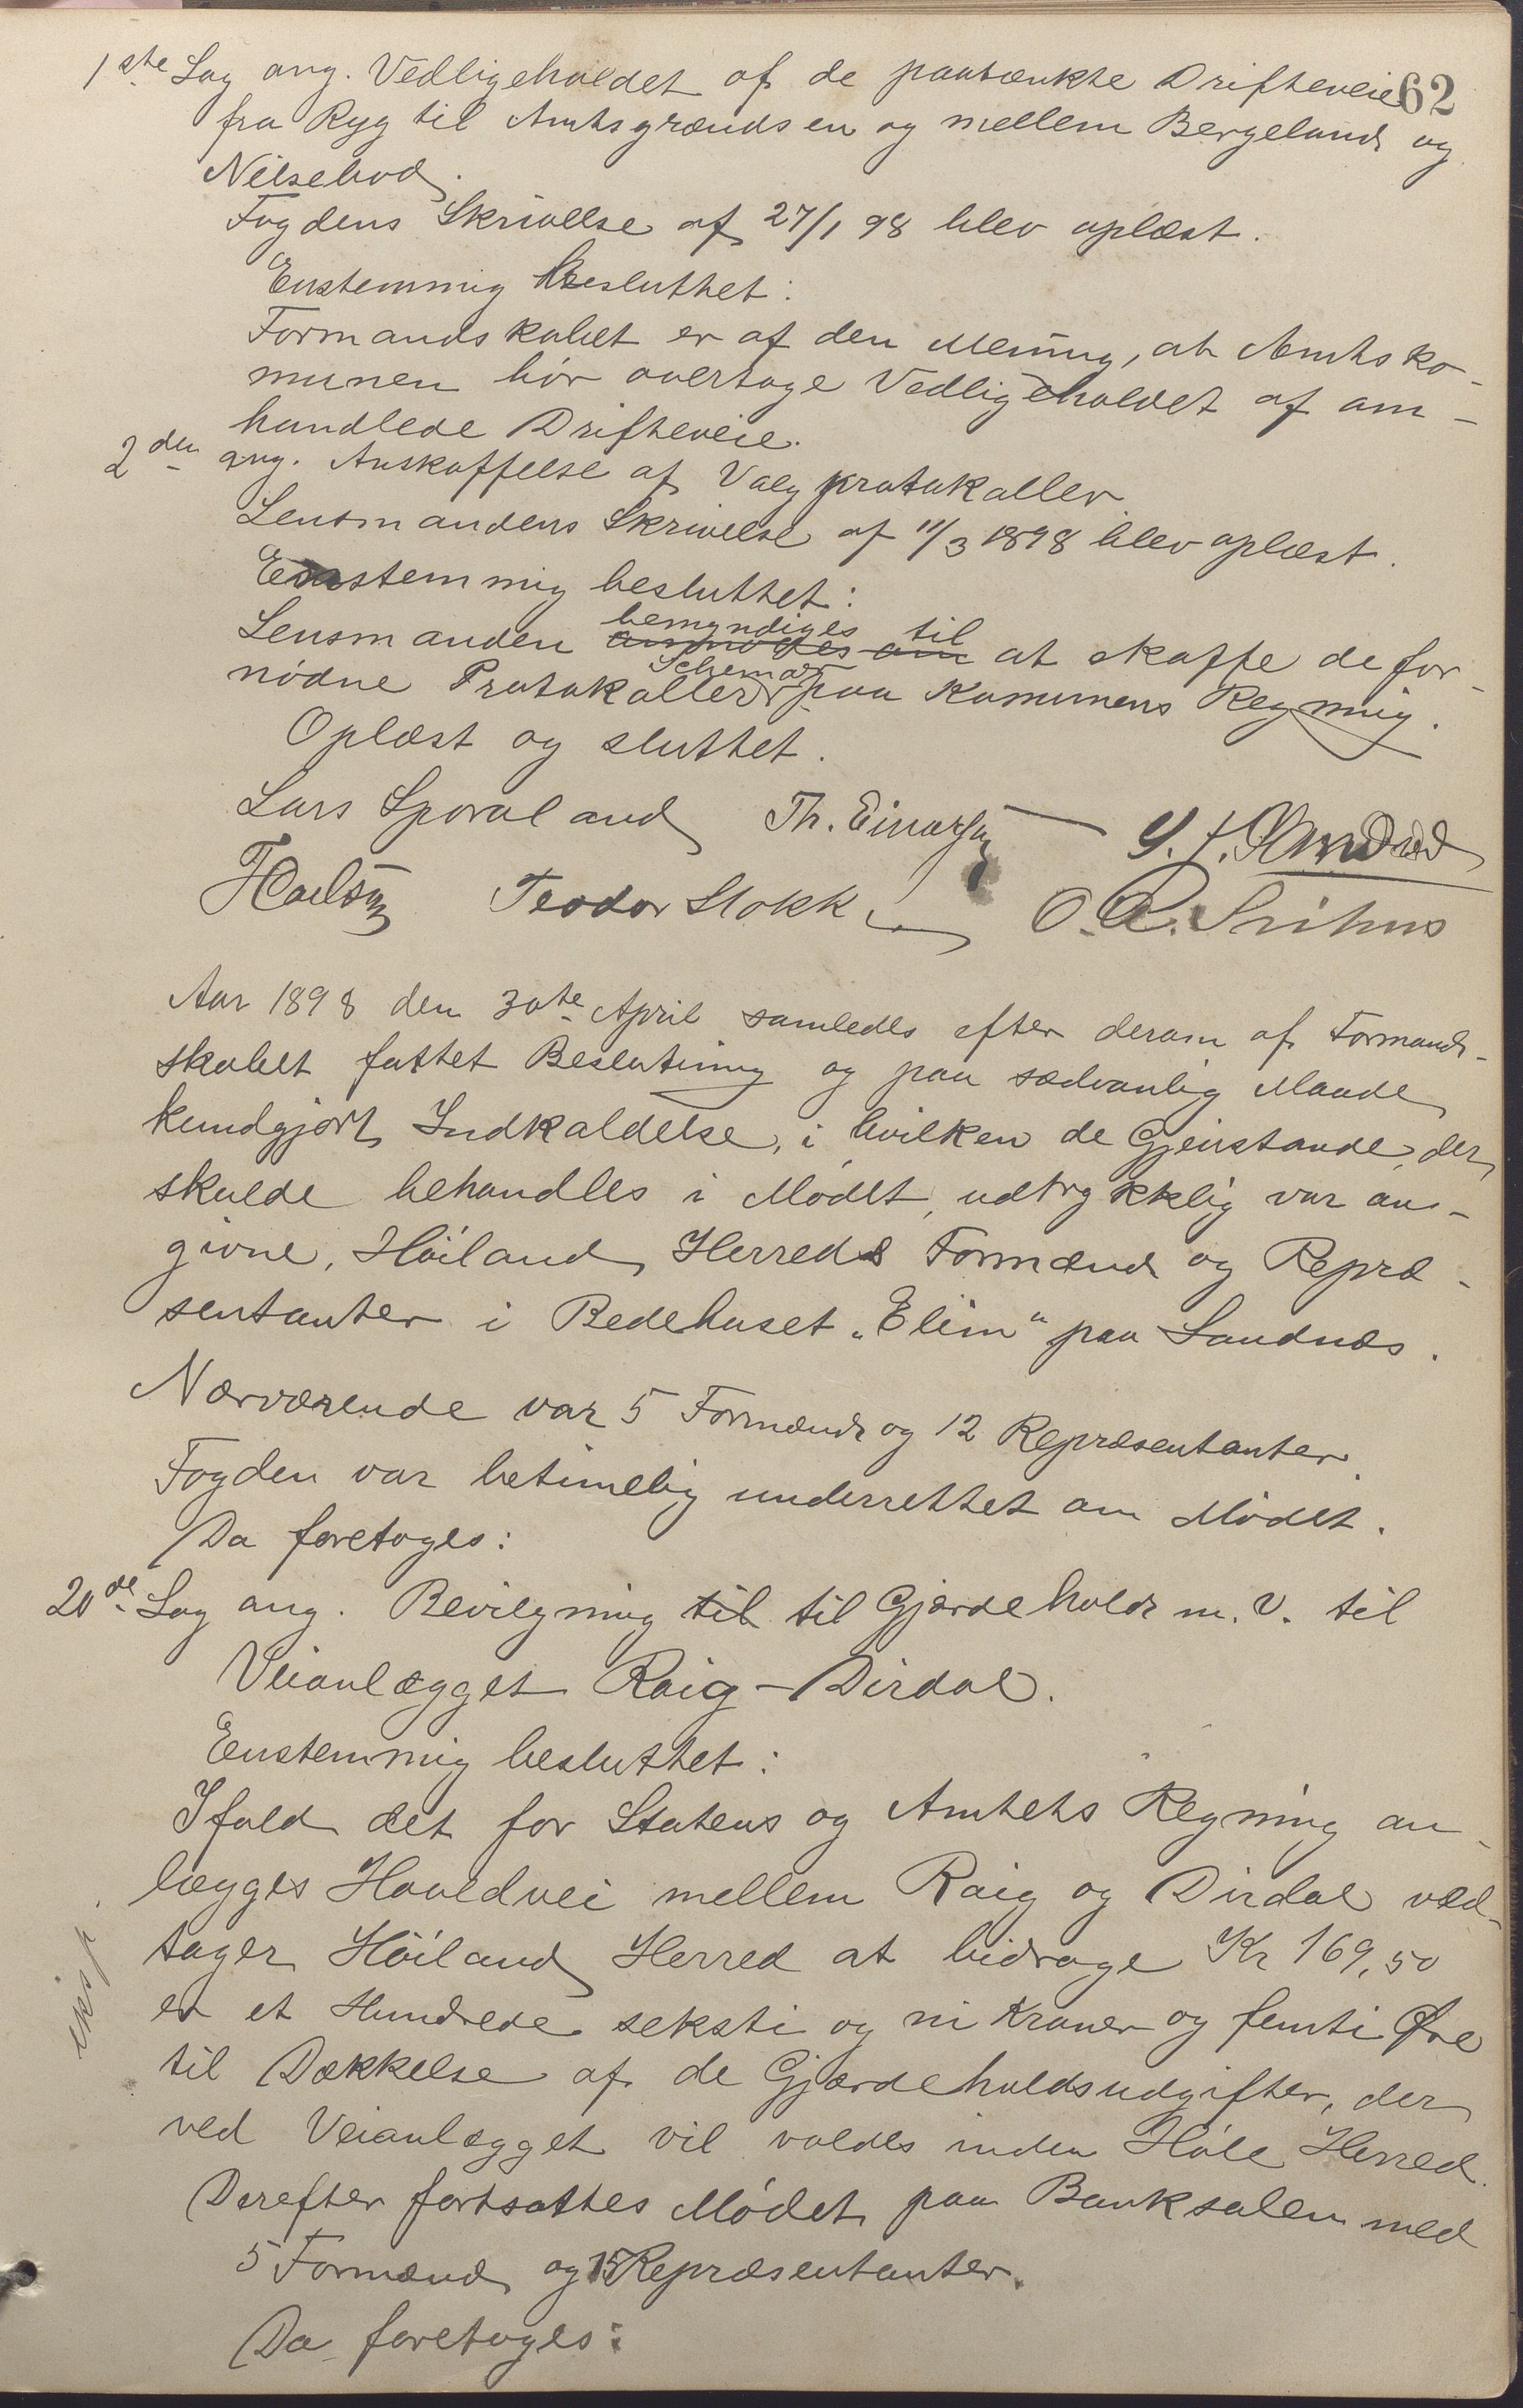 62
1ste Sag ang. Vedligeholdet af de paatænkte Drifteveie
fra Ryg til Amtsgrændsen og mellem Bergeland og
Nilsebod.
Fogdens Skrivelse af 27/1 98 blev oplæst.
Enstemmig besluttet:
Formandskabet er af den Mening, at Amtsko-
munen bør overtage Vedligeholdet af om-
handlede Drifteveie.
2den ang. Anskaffelse af Valgprotokoller
Lensmandens Skrivelse af 11/3 1898 blev oplæst.
Enstemmig besluttet:
bemyndiges til
Lensmanden anmodes om at skaffe de for-
Schemaer
nødne Protokoller paa Komunens Regning.
Oplæst og sluttet.
Lars Sporaland Th. Einarsen
Teodor Stokke
Aar 1898 den 30te April samledes efter derom af Formand-
skabet fattet Beslutning og paa sædvanlig Maade
kundgjort Indkaldelse, i hvilken de Gjenstande, der
skulde behandles i Mødet, udtrykklig var an-
givne, Høiland Herreds Formænd og Repræ-
sentanter i Bedehuset „Elim" paa Sandnæs.
Nærværende var 5 Formænd og 12 Repræsentanter.
Fogden var betimelig underrettet om Mødet.
Da foretoges:
20de Sag ang. Bevilgning til til Gjærdehold m. v. til
Veianlægget Raig-Dirdal.
Eenstemmig besluttet:
Ifald det for Statens og Amtets Regning an-
lægges Hovedvei mellem Raig og Dirdal ved-
tager Høiland Herred at bidrage Kr 169,50
er et Hundrede seksti og ni Kroner og femti Øre
til Dækkelse af de Gjærdeholdsudgifter, der
ved Veianlægget vil voldes inden Høle Herred.
eksp.
Derefter fortsattes Mødet paa Banksalen med
5 Formænd og 15 Repræsentanter.
Da foretoges: